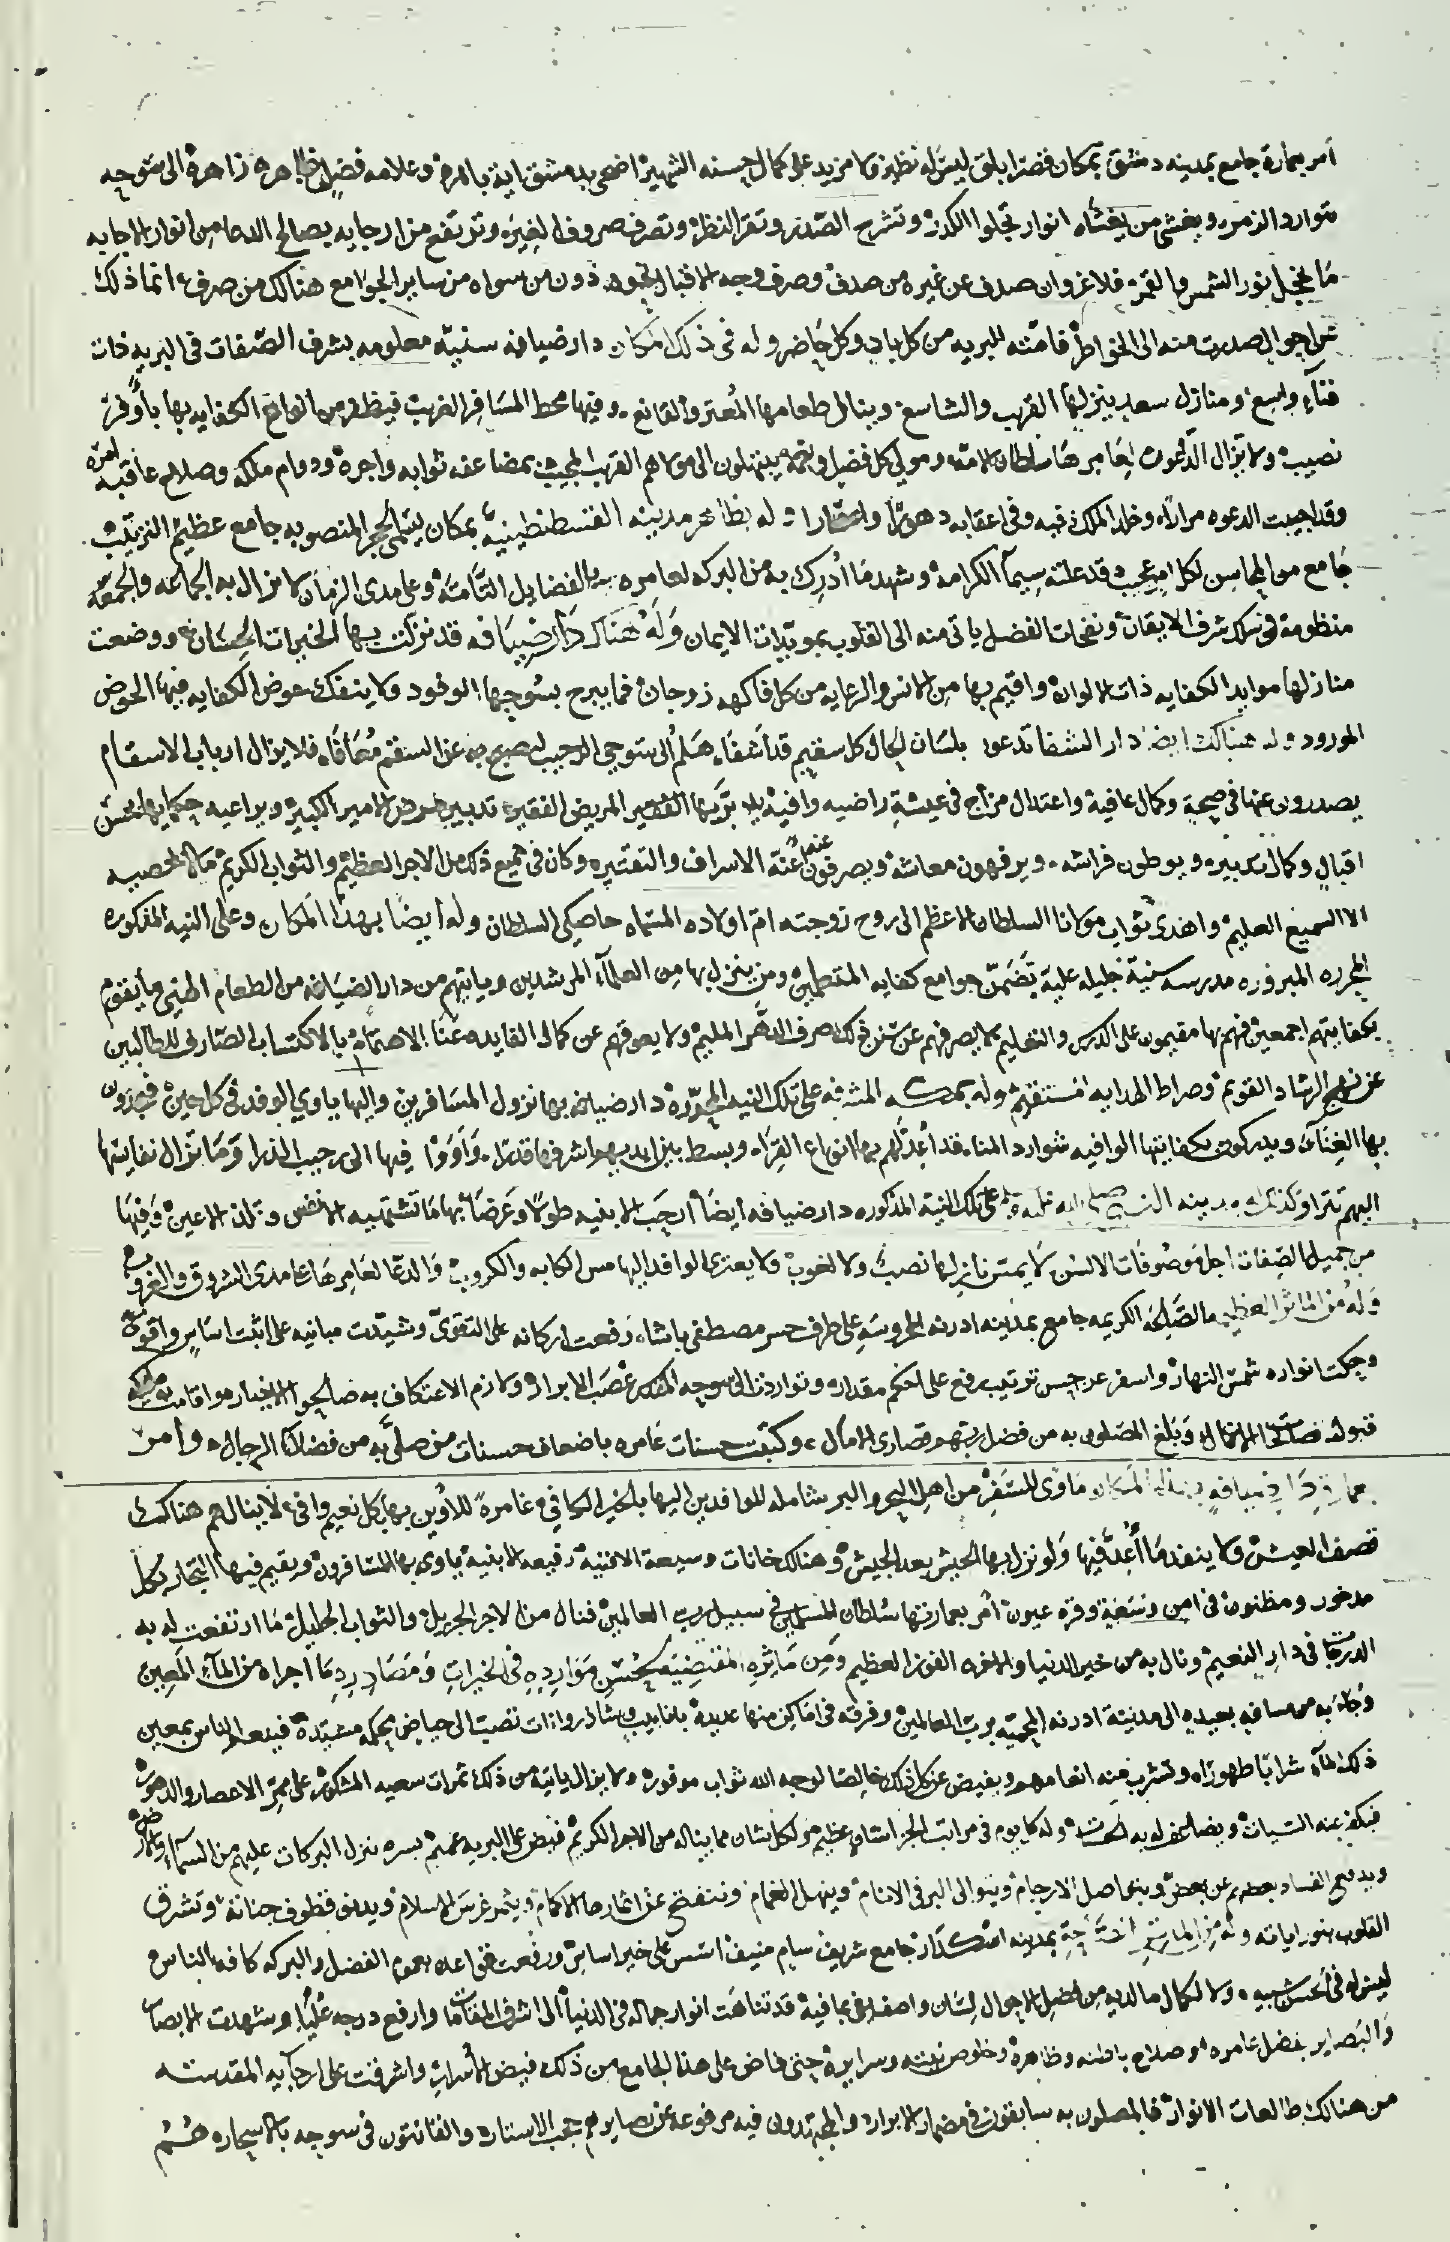 امر بعمارة جامع بمدينه دمشق بمكان قصر ابلق ليس له نظير ولا مزيد على كمال حسنه الشهير اضحى به دمشق اية بالمره وعلامه فضل ظاهره زاهرة الى سوحه
سوارد الزمر ويغشى من يغشاه انوار تجلوا الكدر وتشرح الصدر وتقر النظر وتصرف صروف الغير وترتفع من ارجايه بصالح الدعا من انوار الاجابه
ما يخجل نور الشمس والقمر فلا غرو ان صدف عن غيره من صدف وصرف وجه الاقبال دون من سواه من ساير الجوامع هنالك من صرف انما ذلك
الى الخواطر للبريه من كل باد وكل حاضر وله فى ذلك المكان دار ضيافه سنيه معلومه بشرف الصفات فى البريه ذات
فناء واسع ومنازل سعد ينزلها القريب والشاسع وينال طعامها المعتر والقانع وفيها محط المسافر الغريب فيظفر من انواع الكفايه بها باوفر
نصيب ولا تزال الدعوات لعامرها سلطان الامة ومولى كل فضل ونعمه يبتهلون الى مولاهم القريب المجيب بمضاعف ثوابه واجره ودوام ملكه وصلاح عاقبة امره
وقد اجيبت الدعوه مرارا وخلد الملك فيه وفى اعقابه دهورا واعصارا وله بظاهر مدينه القسطنطينية بمكان يسمى الحجر المنصوب جامع عظيم الترتيب
جامع من المحاسن لكل امر عجيب قد علته سيما الكرامه وشهد ما ادرك به من البركه لعامره بالفضايل التامة وعلى مدى الزمان لا يزال به الجماعه والجمعه
منظومة فى سلك شرف الايقان ونفحات الفضل ياتى منه الى القلوب بمويدات الايمان وله هناك دار ضيافه قد نزلت بها الخيرات الحسان ووضعت
منازلها موايد الكفايه ذات الالوان واقيم بها من الانس والرعايه من كل فاكهه زوجان فما يبرح بسوحها الوفود ولا ينفك عوض الكفايه فيها الحوض
المورود وله هناك ايضا دار الشفا تدعو بلسان الحال كل سقيم قد اشفاه هلم الى سوحى الرحيب ليصبح من السقم معافاه فلا يزال ارباب الاسقام
يصدرون عنها فى صحة وكمال عافية واعتدال مزاج فى عيشة راضيه وافيه المريض الفقير تدبير مرض الامير الكبير ويراعيه حكماوها بحسن
اقبال وكمال تدبير ويوطون فراشه ويرفهون معاشه ويصرفون عنه عنة الاسراف والتقتير وكان فى جميع ذلك من الاجر العظيم والثواب الكريم ما لا يحصيه
الا السميع العليم واهدى ثواب مولانا السلطان الاعظم الى روح زوجته ام اولاده المسماه خاصكى السلطان وله ايضا بهذا المكان وعلى النيه المذكوره
المحرره المبروره مدرسه سنية جليله علية تضمن جوامع كفايه المتعلمين ومن ينزل بها من العلماء المرشدين وياتيهم من دار الضيافه من الطعام الهنى ما يقوم
بكفايتهم اجمعين فهم بها مقيمون على الدرس والتعليم لا يصرفهم عن سنن ذلك صرف الدهر المليم ولا يعوقهم عن كمال الفايده عنا الاهتمام بالاكتساب الصارف للطالبين
عن نهج الرشاد القويم وصراط الهدايه المستقيم وله بمكه المشرفه على تلك النيه المحرره دار ضيافه بها نزول المسافرين واليها ياوى الوفد فى كل حين فيجدون
بها الغناء ويدركون بكفايتها الوافيه شوارد المناء قد اعد لهم بها انواع القراء وبسط واووا فيها الى رحيب الذرا وما تزال نفايتها
اليهم تترا وكذلك بمدينه النبى صلى الله عليه وسلم على تلك النية المذكوره دار ضيافه ايضا ارحب الابنيه طولا وعرضا بها ما تشتهيه الانفس وتلذ الاعين وفيها
من جميل الصفات اجل موصوفات الالسن لا يمس نازلها نصب ولا لغوب ولا يعترى الوافد اليها مس الكابه والكروب والدعا لعامرها على مدى الشروق والغروب
وله من الماثر العظيمه الصالحه الكريمه جامع بمدينه ادرنه المحروسه على طرف جسر مصطفى باشاه رفعت اركانه على التقوى وشيدت مبانيه على اثبت اساس واقوى
وحكت انواره شمس النهار واسفر عن حسن ترتيب رفع على مقداره وتواردت الى سوحه المقدس عصب الابرار ولازم الاعتكاف به صالحوا الاخيار واقامت
قبولا صالح الاعمال وبلغ المصلون به من فضل ربهم قصارى الامال وكتبت حسنات عامره باضعاف حسنات من صلى به من فضلا الرجال وامر
بعمارة دار ضيافه بهذا المكان ماوى للسفر من اهل البحر والبر شامله للوافدين اليها بالخير الكافى عامرة للاوين بها بكل نعيم وافى لا ينالهم هناك
قصف العيش ولا ينفد ما اعد فيها ولو نزل بها الجيش بعد الجيش وهنالك خانات وسيعة الافنية رفيعه الابنية ياوى بها المسافرون ويقيم فيها التجار بكل
مدخور ومظنون فى امن وسعة وقرة عيون امر بعمارتها سلطان المسلمين فى سبيل رب العالمين فنال من الاجر الجزيل والثواب الجليل ما ارتفعت له به
الدرجات فى دار النعيم ونال به من خير الدنيا والاخره الفوز العظيم ومن ماثره المقتضية بحسن موارده فى الخيرات ومصادره ما اجراه من الماء المعين
وجاء به من مسافه بعيده الى مدينة ادرنه المحميه برب العالمين وفرقه فى اماكن منها عديدة بانابيب وشاذروانات نصبت الى حياض محكمه مشيدة فينعم الناس بمعين
ذلك الماء شرابا طهورا وتشرب منه انعامهم ويفيض عن كل ذلك خالصا لوجه الله ثواب موفور ولا يزال ياتيه من ذلك ثمرات سعيه المشكور على ممر الاعصار والدهور
فيكفر عنه السيات ويضاعف له به الحسنات وله كل يوم فى مراتب الخير شان عظيم ولكل شان مما يناله من الاجر الكريم فيض على البريه عميم بسره تنزل البركات عليهم من السماء والارض
ويدفع الفساد بعضهم عن بعض ويتواصل الارحام ويتوالى البر فى الانام وينهل الغمام وتنفتح عن اثمارها الاكمام ويثمر غرس الاسلام ويدنو قطوف جنانه وتشرق
القلوب بنور اياته وله من الماثر بمدينه اسكدار جامع شريف سام منيف اسس على خير اساس ورفعت قواعده بعموم الفضل والبركه كافه الناس
ليس له فى الحسن شبيه ولا لكمال ما لديه من افضل الاحوال لسان واصف يفى بما فيه قد تناهت انوار جماله فى الدنيا الى اشرف المقامات وارفع درجه عليا وشهدت الابصار
والبصاير بفضل عامره وصلاح باطنه وظاهره وخلوص نيته وسرايره حتى فاض على هذا الجامع من ذلك فيض الاسرار واشرقت على ارجايه المقدسه
من هنالك طالعات الانوار فالمصلون به سابقون فى مضمار الابرار والمجتهدون فيه مرفوعه عن بصايرهم حجب الاستار والقانتون فى سوحه بالاسحار هم